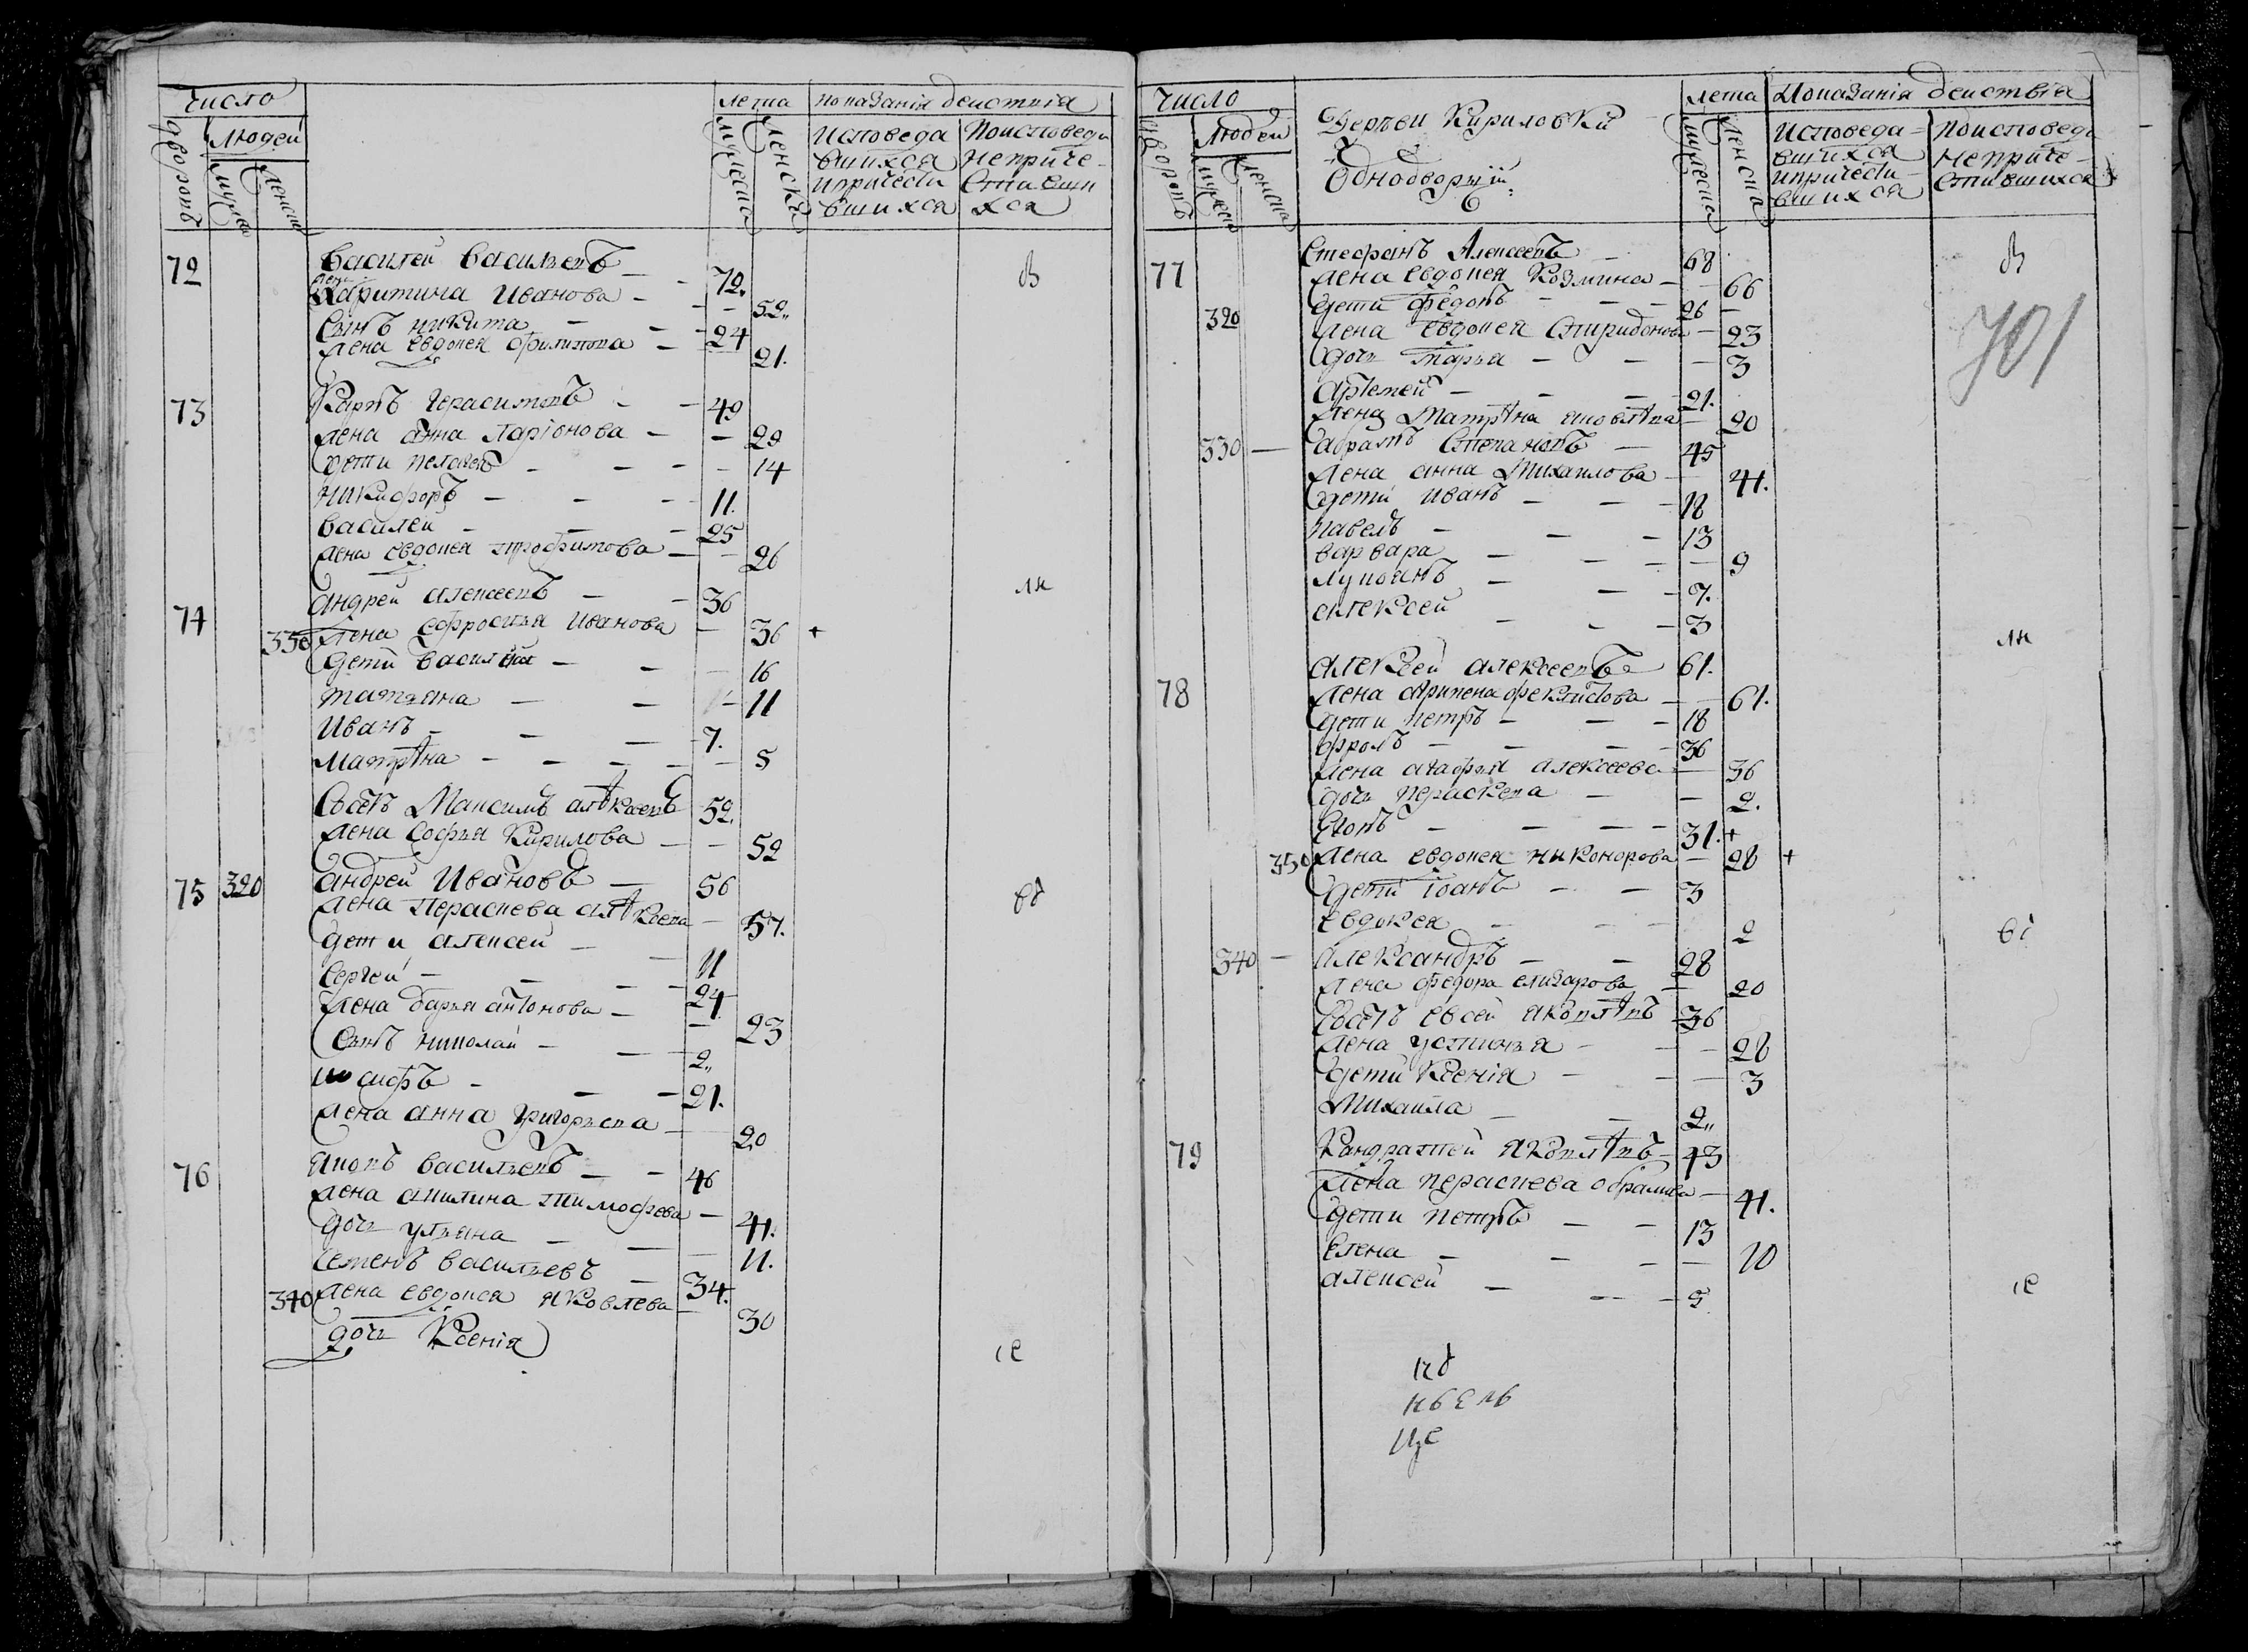 Число
Людей
лета показанія действія
дворовъ
мужеска
женска
мужеска
женска
Исповеда
вшихся
ипричести
вшихся
Поисповеди
Неприче-
стивши
хся
72 Василей Васильевъ - 72.
жена Харитина Иванова - 52.
Сынъ никита - 24
жена евдокея филипова - 21.
73 Карпъ Герасимовъ - 49
жена анна Ларіонова - 29
дети пелагея - 14
Никифоръ - 11.
василей - 25
жена евдокея трофимова - 26
74 андрей алексеевъ - 36
330 жена ефросинья Иванова - 36 +
дети василиса - 16
татьяна - 11
Иванъ - 7.
матрѣна - 5
Сватъ Максимъ алѣксеевъ 52.
жена Софья Кирилова - 52
75 320 андрей Ивановъ - 56
жена Пераскева алѣксеева - 57.
дети алексей - 11
Сергей - 24
жена дарья антонова - 23
Сынъ николай - 2
иосифъ - 21.
жена анна григорьева - 20
76 Яковъ васильевъ - 46
жена акилина тимофеева - 41.
дочь ульяна - 11.
Семенъ васильевъ - 34.
340 жена евдокея яковлева - 30
дочь Ксенія
Число
Людей
Деревни Кириловки
Однодворцы
лета Показанія действія
дворовъ
мужеска
женска
мужеска
женска
Исповеда-
вшихся
ипричести-
вшихся
Поисповеди
Неприче-
стившихся
701
77 Стефанъ Алексеевъ - 68
жена евдокея Козмина - 66
320 дети федотъ - 26
жена евдокея Спиридонова - 23
дочь марья - 3
Артемей - 21.
жена Матрѣна яковлѣва - 20
330 - абрамъ Степановъ - 45
жена анна Михаилова - 41.
дети иванъ - 18
павелъ - 13
варвара - 9
лукьянъ - 7.
алексей - 3
78 алексей алексеевъ 61.
жена агрипена феклистова - 61.
дети петръ - 18
фролъ - 36
жена агафья алексеева - 36
дочь пераскева - 2.
Яковъ - 31. +
350 жена евдокея никонорова - 28 +
дети іванъ - 3
евдокея - 2
340 - александръ - 28
жена федора елизарова - 20
Сватъ евсей яковлѣвъ 36
жена устинья - 28
дети Ксенія - 3
Михаила - 2
79 Кандратей яковлѣвъ - 43
жена пераскева абрамова - 41.
дети петръ - 13
елена - 10
алексей - 5